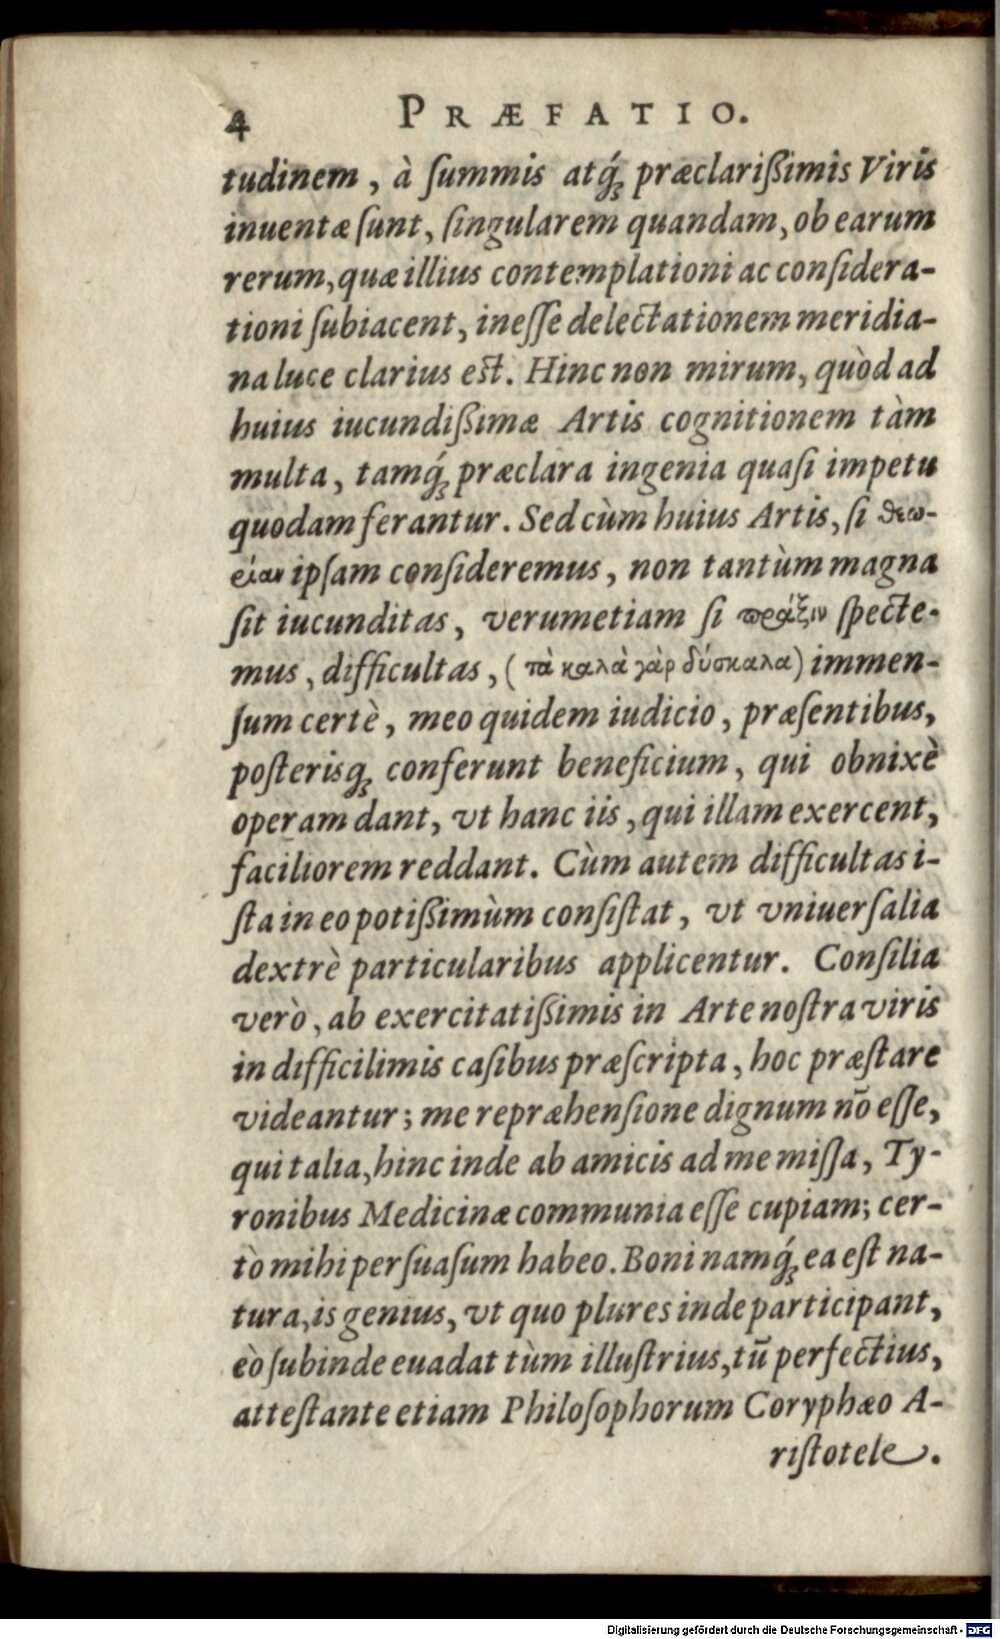 4 PRÆFATIO.
tudinem, à ſummis atq́ꝫ præclarißimis Viris
inuentæ ſunt, ſingularem quandam, ob earum
rerum, quæ illius contemplationi ac conſidera-
tioni ſubiacent, ineſſe delectationem meridia-
na luce clarius est. Hinc non mirum, quòd ad
huius iucundißimæ Artis cognitionem tàm
multa, tamq́ꝫ præclara ingenia quaſi impetu
quodam ferantur. Sed cùm huius Artis, ſi θεω-
ρίαν ipſam conſideremus, non tantùm magna
ſit iucunditas, verumetiam ſi πράξιν ſpecte-
mus, difficultas, (τὰ καλὰ γὰρ δύσκαλα) immen-
ſum certè, meo quidem iudicio, præſentibus,
poſterisqꝫ conferunt beneficium, qui obnixè
operam dant, vt hanc iis, qui illam exercent,
faciliorem reddant. Cùm autem difficultas i-
ſta in eo potißimùm conſiſtat, vt vniuerſalia
dextrè particularibus applicentur. Conſilia
verò, ab exercitatißimis in Arte noſtra viris
in difficilimis caſibus præſcripta, hoc præſtare
videantur; me repræhenſione dignum nō eſſe,
qui talia, hinc inde ab amicis ad me miſſa, Ty-
ronibus Medicinæ communia eſſe cupiam; cer-
tò mihi perſuaſum habeo. Boni namq́ꝫ ea eſt na-
tura, is genius, vt quo plures inde participant,
eò ſubinde euadat tùm illuſtrius, tū perfectius,
atteſtante etiam Philoſophorum Coryphæo A-
riſtotele.
Digitalisierung gefördert durch die Deutsche Forschungsgemeinschaft - DFG